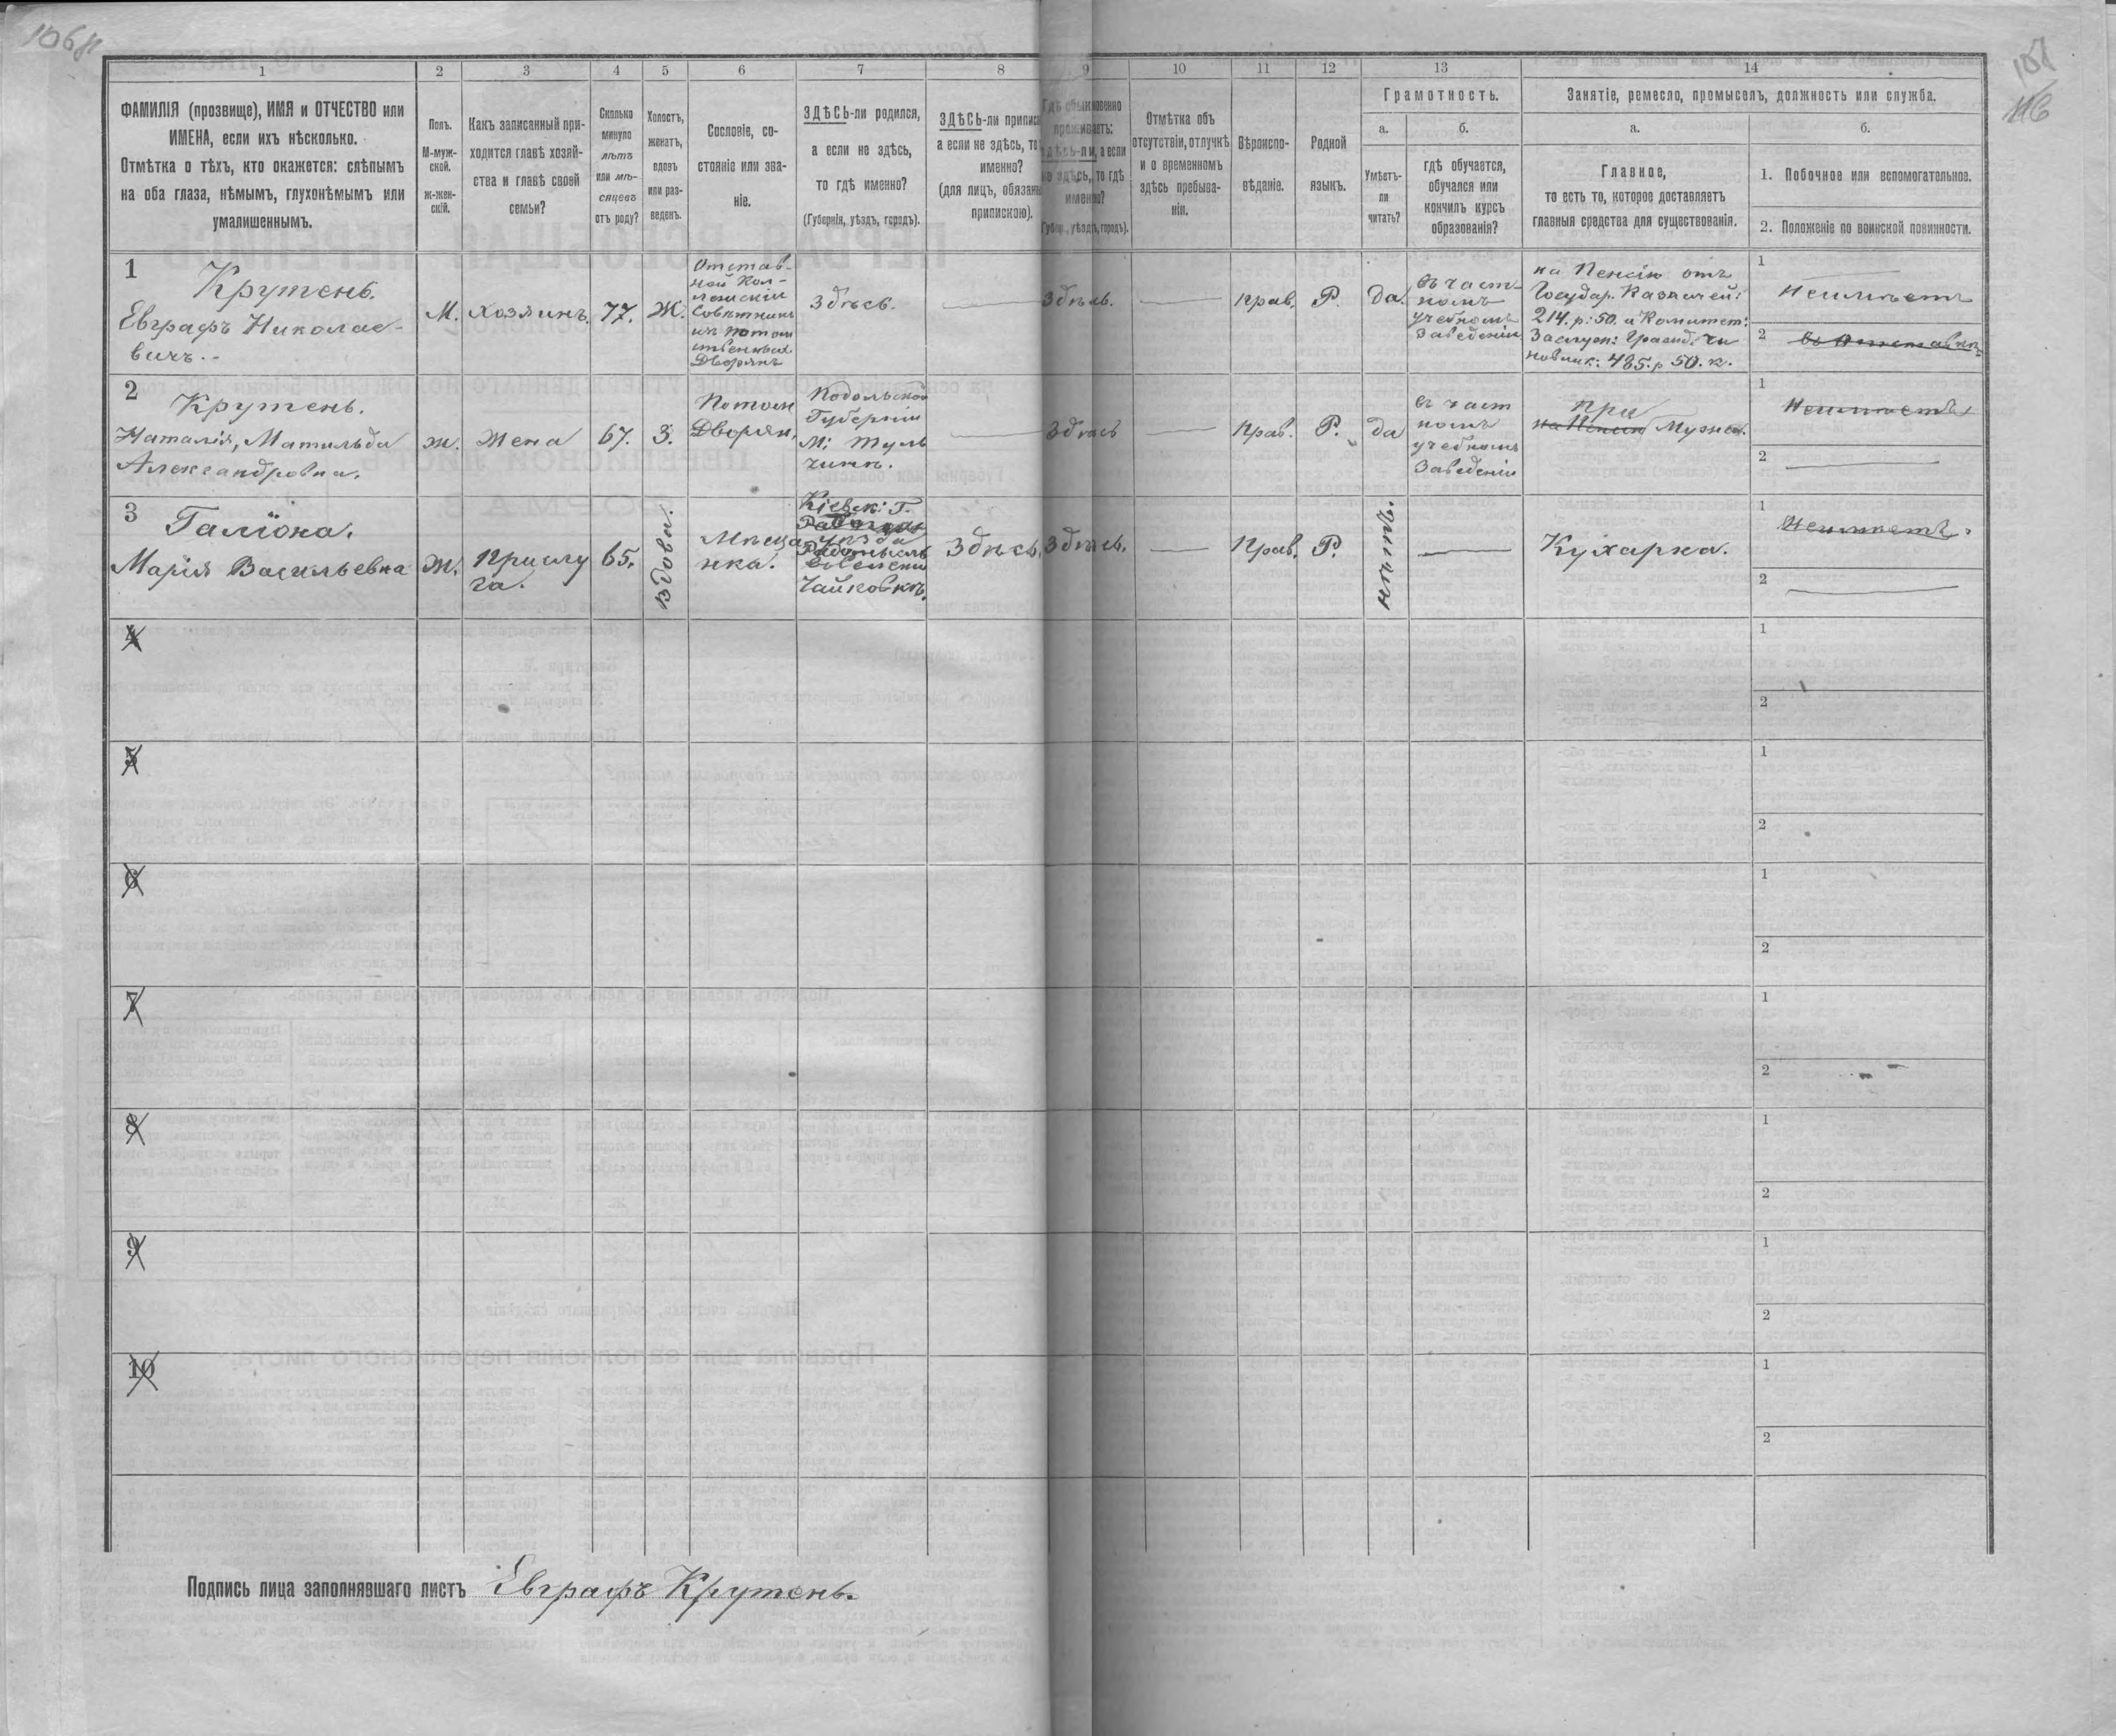 1
2
3
4
5
6
7
8
9
10
11
12
13
14
ФАМИЛІЯ (прозвище), ИМЯ и ОТЧЕСТВО или
ИМЕНА, если ихъ нѣсколько.
Отмѣтка о тѣхъ, кто окажется: слѣпымъ
на оба глаза, нѣмымъ, глухонѣмымъ или
умалишеннымъ.
Полъ.
М-муж-
ской.
ж-жен-
скій.
Какъ записанный при-
ходится главѣ хозяй-
ства и главѣ своей
семьи?
Сколько
минуло
лѣтъ
или мѣ-
сяцевъ
отъ роду?
Холостъ,
женатъ,
вдовъ
или раз-
веденъ.
Сословіе, со-
стояніе или зва-
ніе.
ЗДѢСЬ-ли родился,
а если не здѣсь,
то гдѣ именно?
(Губернія, уѣздъ, городъ).
ЗДѢСЬ-ли припис
а если не здѣсь, то
именно?
(для лицъ, обязан
припискою).
Гдѣ обыкновенно
проживаетъ:
здѣсь-ли, а если
не здѣсь, то гдѣ
именно?
(Губер., уѣздъ, городъ).
Отмѣтка объ
отсутствіи, отлучкѣ
и о временномъ
здѣсь пребыва-
ніи.
Вѣроиспо-
вѣданіе.
Родной
языкъ.
Грамотность.
а.
б.
Умѣетъ-
ли
читать?
гдѣ обучается,
обучался или
кончилъ курсъ
образованія?
Занятіе, ремесло, промыселъ, должность или служба.
а.
б.
Главное,
то есть то, которое доставляетъ
главныя средства для существованія.
1. Побочное или вспомогательное.
2. Положеніе по воинской повинности.
1
Крутень.
Евграфъ Николае-
вичъ.
М.
хозяинъ.
77.
Ж.
Отстав-
ной Кол-
лежскій
Совѣтникъ
изъ потом
ственныхъ
Дворянъ
Здѣсь.
Здѣсь.
Прав.
Р.
да.
въ част-
номъ
учебномъ
Заведеніи
на Пенсіи отъ
Государ. Казначей:
214. р. 50. и Комитет:
Заслужен: Гражд. Чи
новник: 485. р 50. к.
1
Неимѣетъ
2
въ отставкѣ
2
Крутень.
Наталія, Матильда
Александровна.
ж.
Жена
67.
З.
Потом
Дворян.
Подольской
Губерніи
М: Туль
чинъ.
Здѣсь
Прав.
Р.
да
въ част
номъ
учебномъ
Заведеніи
при
на Пенсіи Мужѣ.
1
Неимѣетъ
2
3
Галіона.
Марія Васильевна
Ж.
Прислу
га.
65.
вдова.
Мѣща
нка.
Кіевск: Г.
уѣзда
Чайковкѣ.
Здѣсь.
Здѣсь.
Прав.
Р.
нѣтъ.
Кухарка.
1
Неимѣетъ.
2
4
1
2
5
1
2
6
1
2
7
1
2
8
1
2
9
1
2
10
1
2
Подпись лица заполнявшаго листъ Евграфъ Крутень.